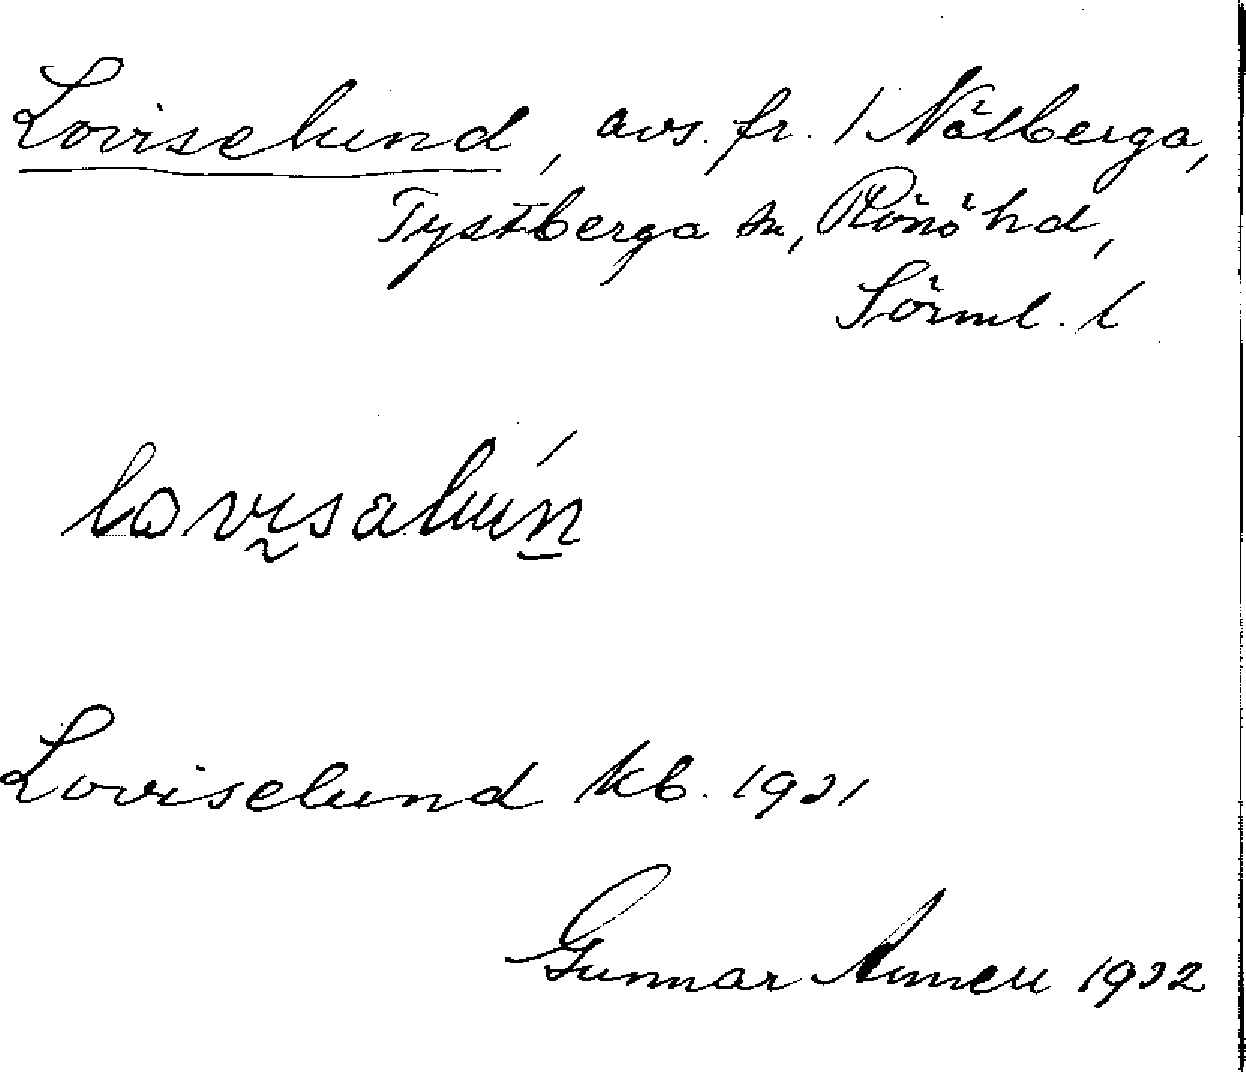 Loviselund, avs. fr. 1 Nälberga,
Tystberga sn, Rönö hd,
Sörml. l
lovisalun
Loviselund kb. 1921
Gunnar 1922